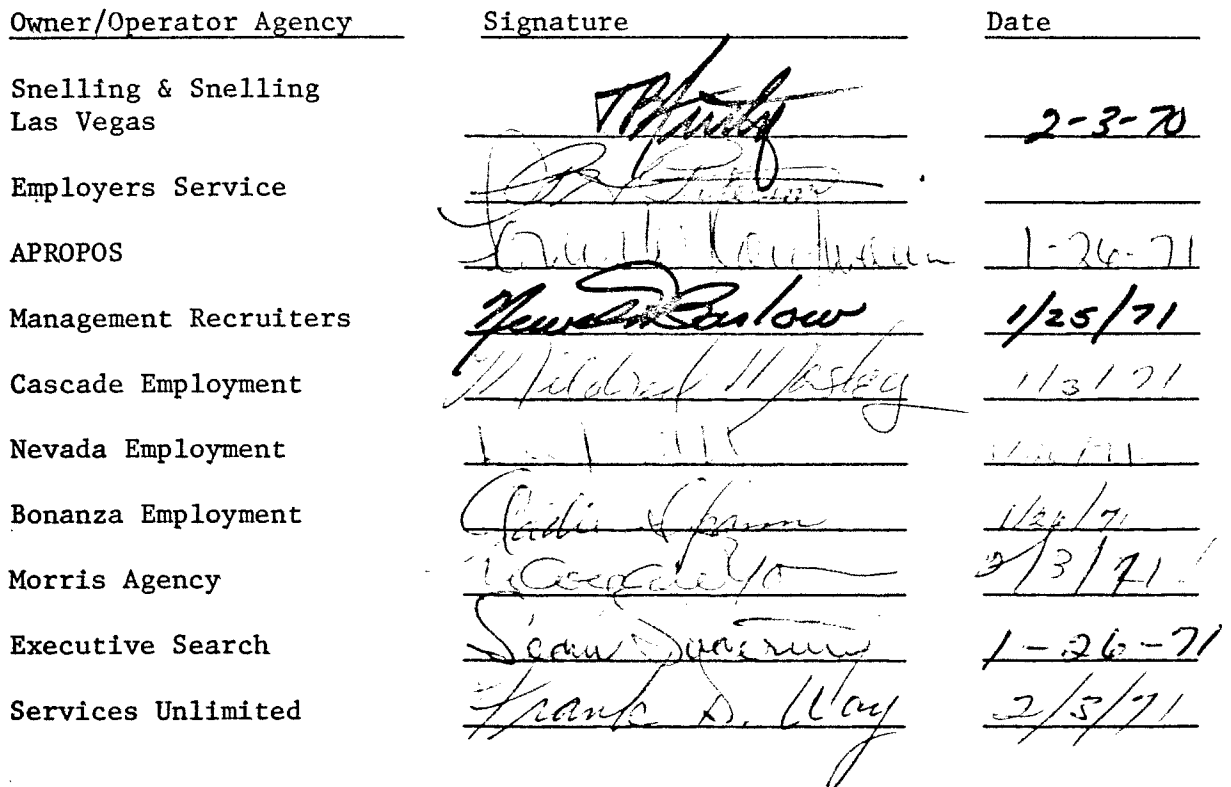 Owner/Operator Agency Signature Date
Snelling & Snelling
Las Vegas 2-3-70
Employers Service
APROPOS 1-26-71
Management Recruiters Barlow 1/25/71
Cascade Employment Mildred Mosley 1/3/71
Nevada Employment
Bonanza Employment 1/26/71
Morris Agency 2/3/71
Executive Search 1-26-71
Services Unlimited Frank S. Way 2/3/71